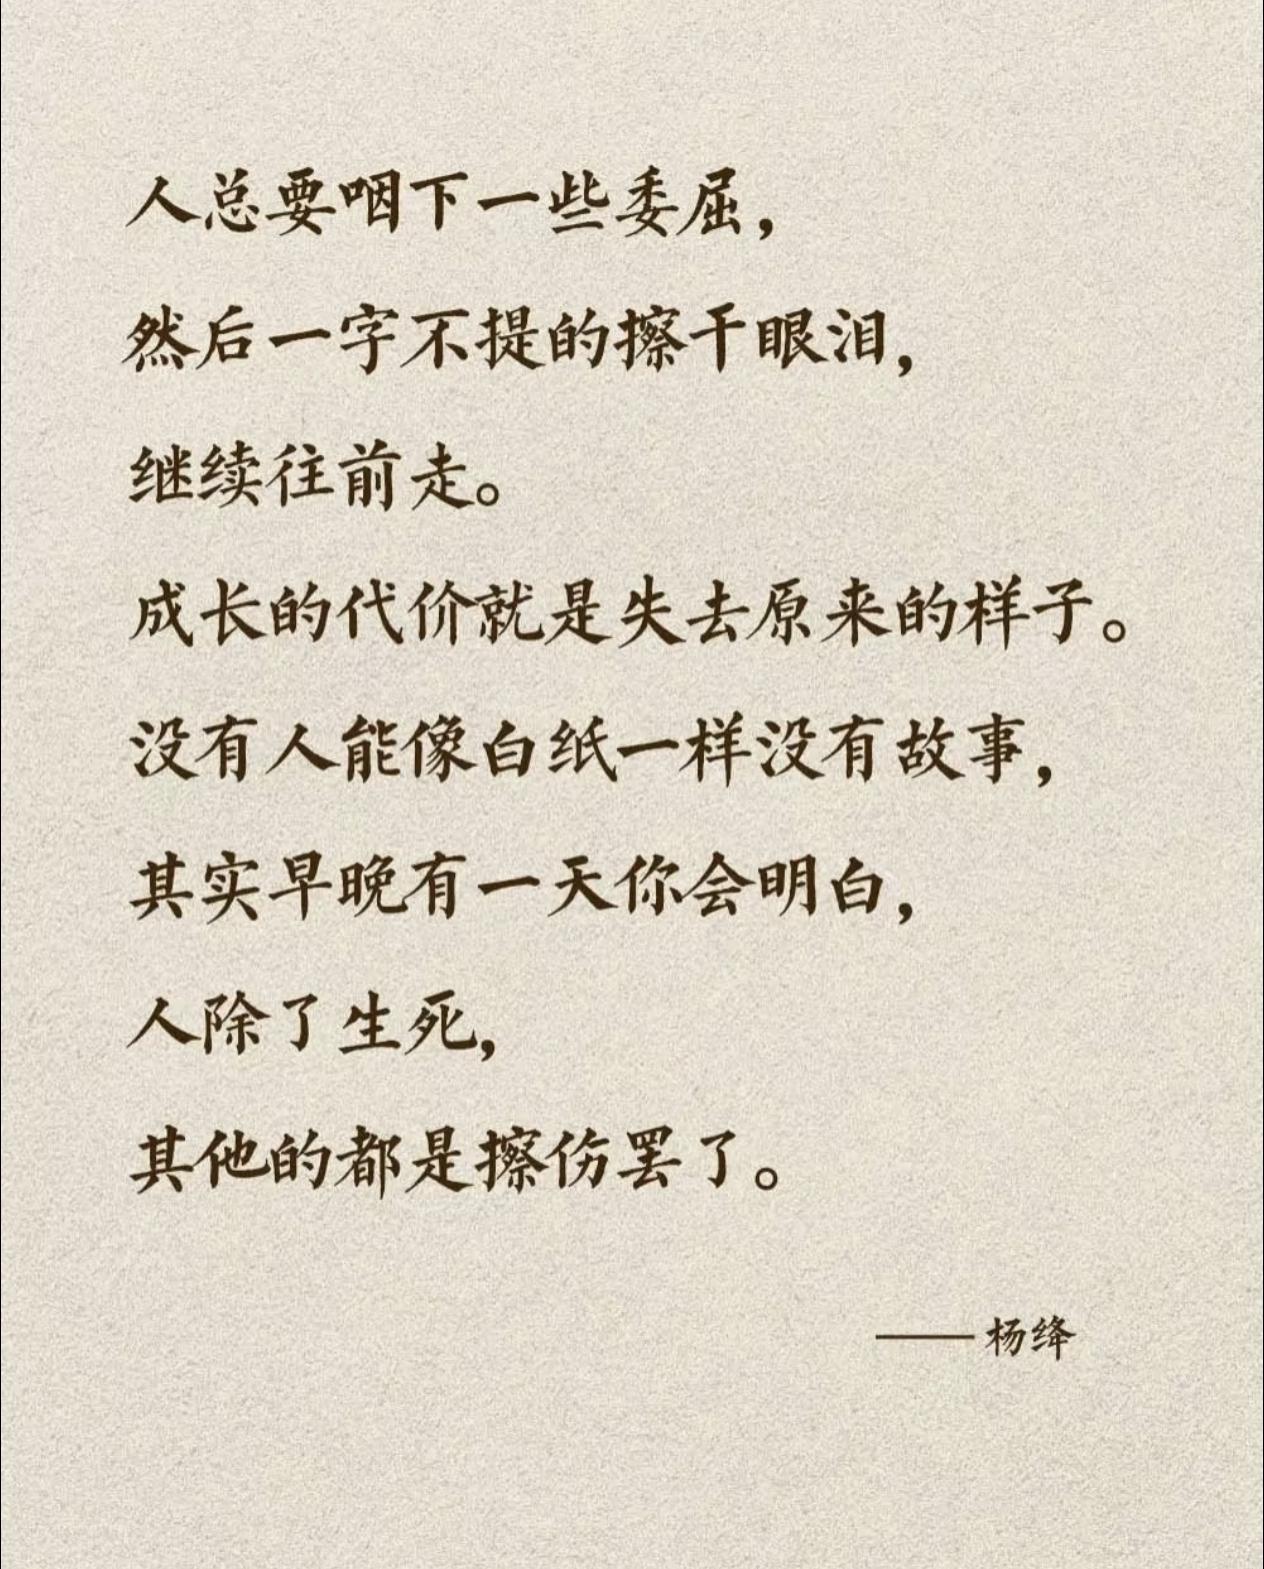 人总要咽下一些委屈，
然后一字不提的擦干眼泪，
继续往前走。
成长的代价就是失去原来的样子。
没有人能像白纸一样没有故事，
其实早晚有一天你会明白，
人除了生死，
其他的都是擦伤罢了。
—— 杨绛